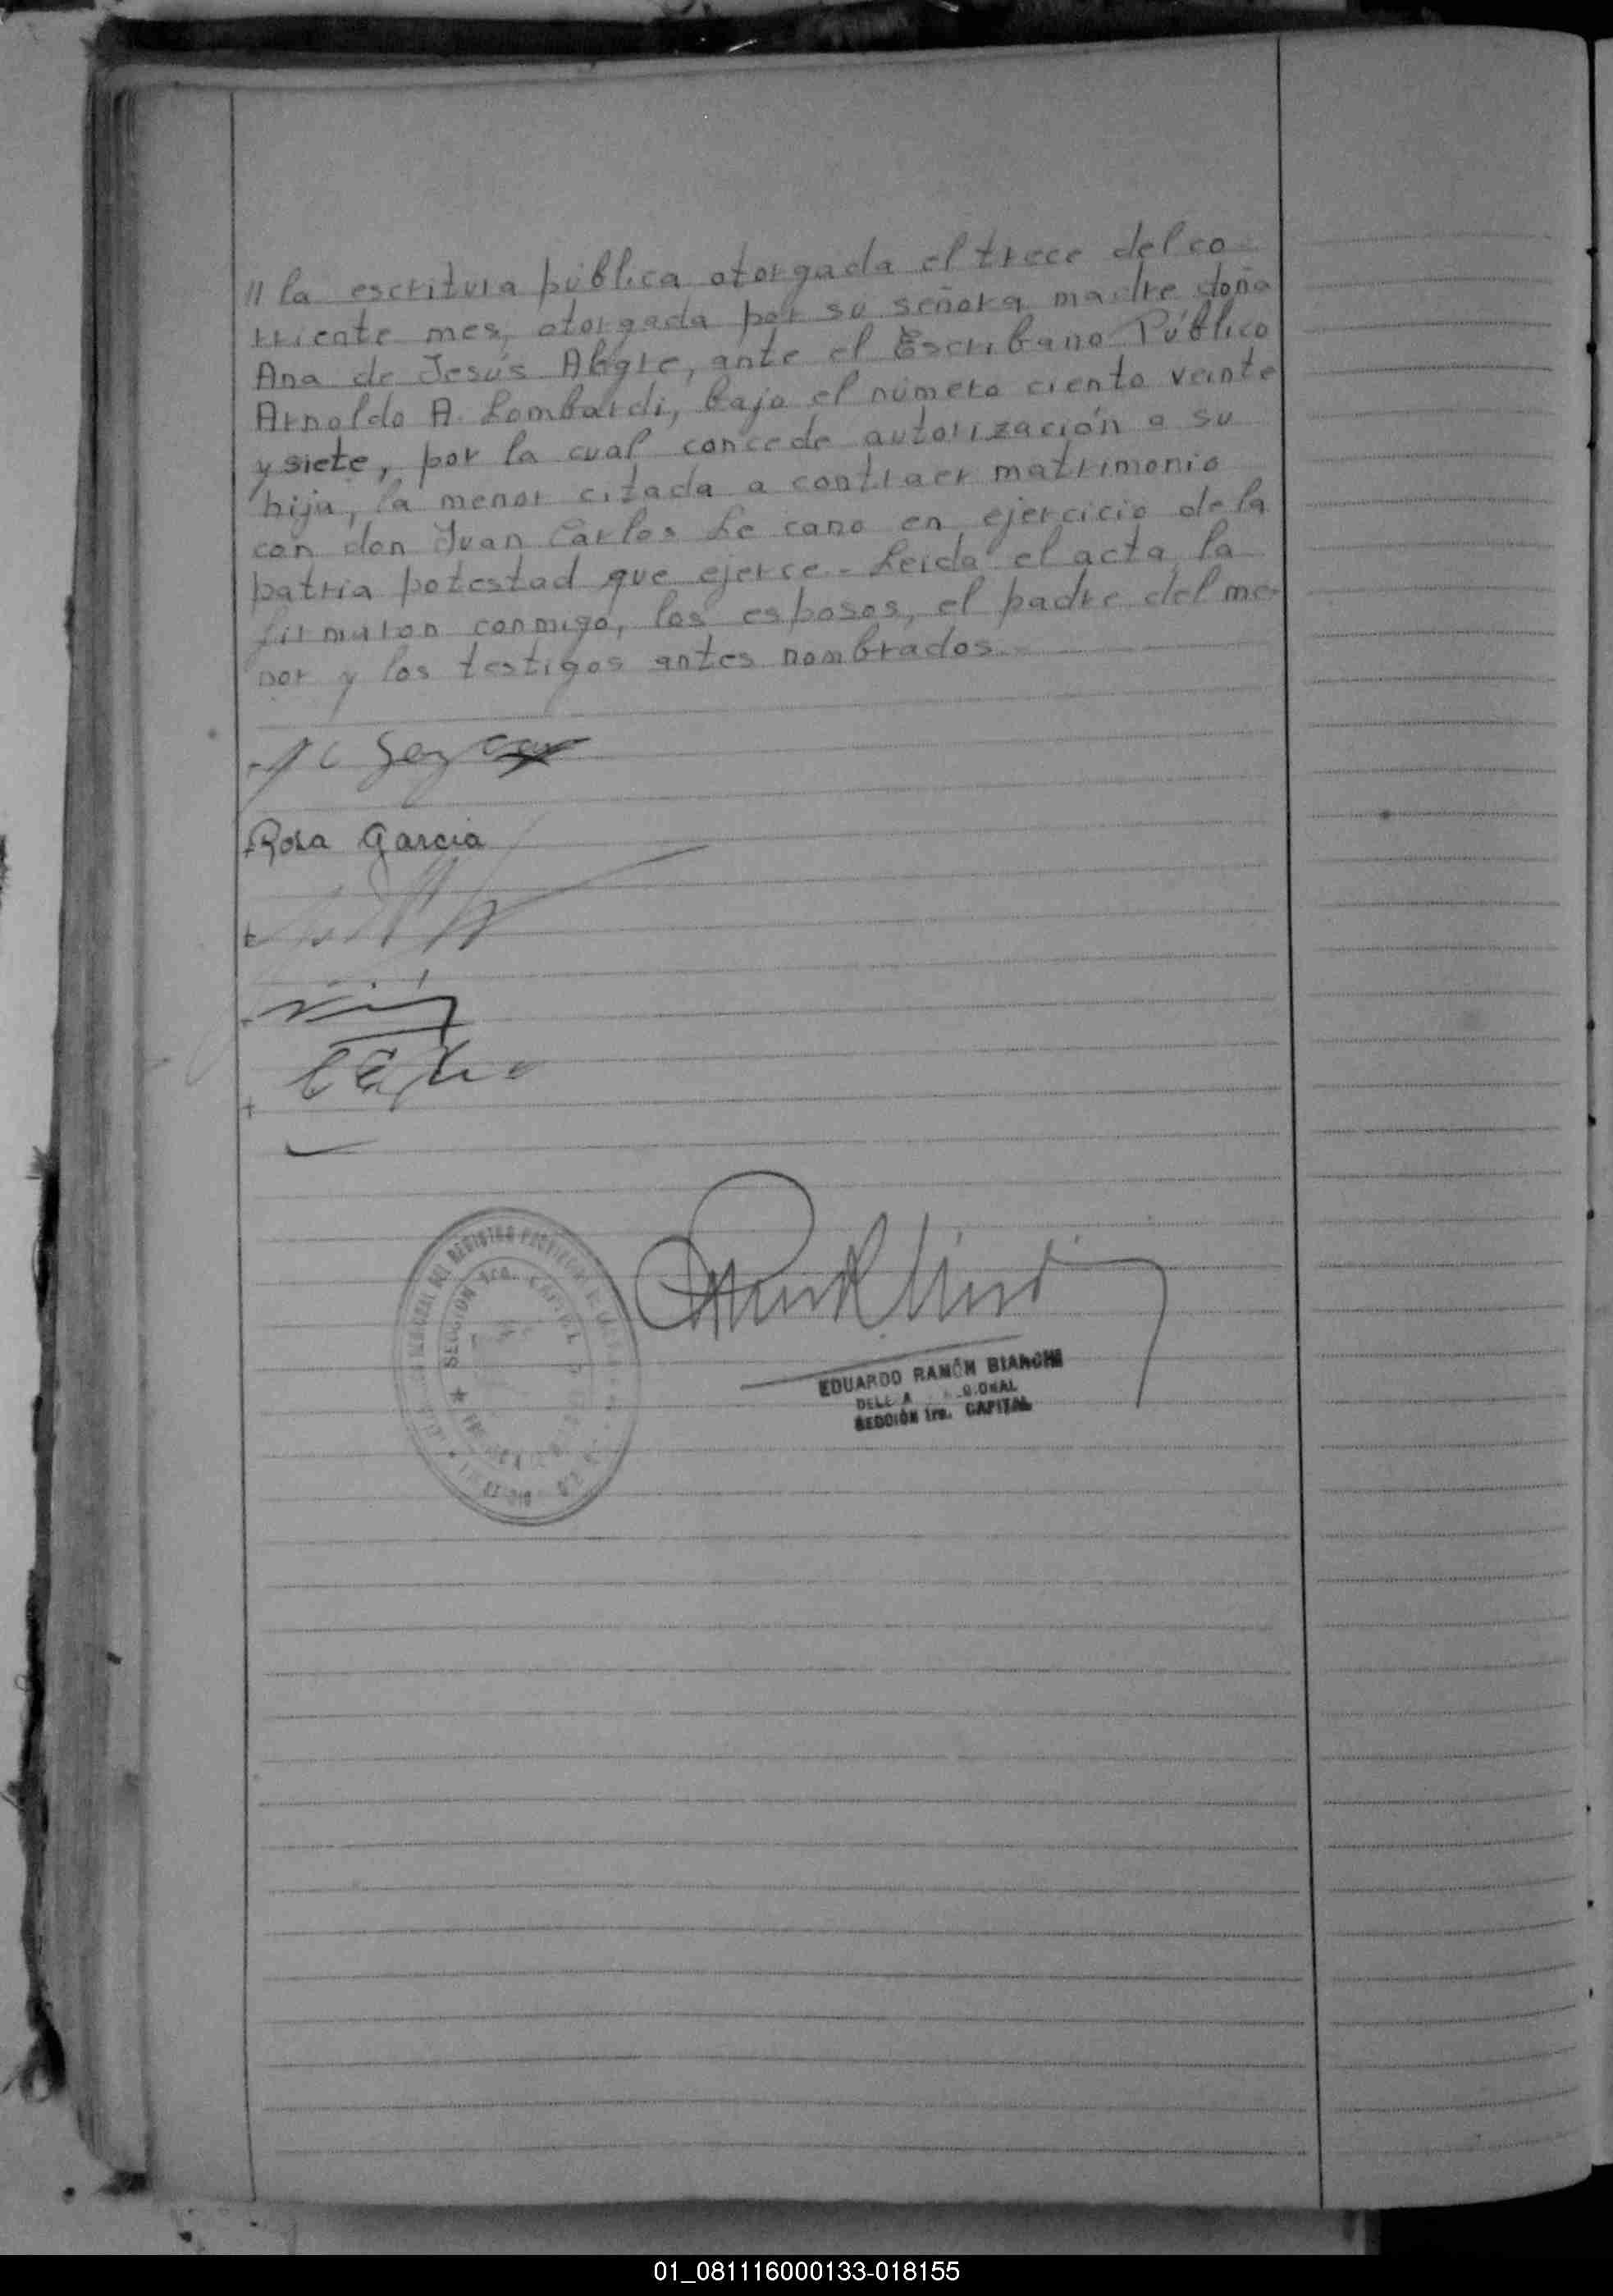 // la escritura pública otorgada el trece del co
rriente mes, otorgada por su señora madre doña
Ana de Jesús Alegre, ante el Escribano Público
Arnoldo A. Lombardi, bajo el número ciento veinte
y siete, por la cual concede autorización a su
hija, la menor citada a contraer matrimonio
con don Juan Carlos Lezcano en ejercicio de la
patria potestad que ejerce.- Leida el acta, la
firmaron conmigo, los esposos, el padre del me-
nor y los testigos antes nombrados.-
Rosa Garcia
REGISTRO
SECCION 1ra. CAPITAL
EDUARDO RAMÓN BIANCHI
SECCIÓN 1ra. CAPITAL
01_081116000133-018155